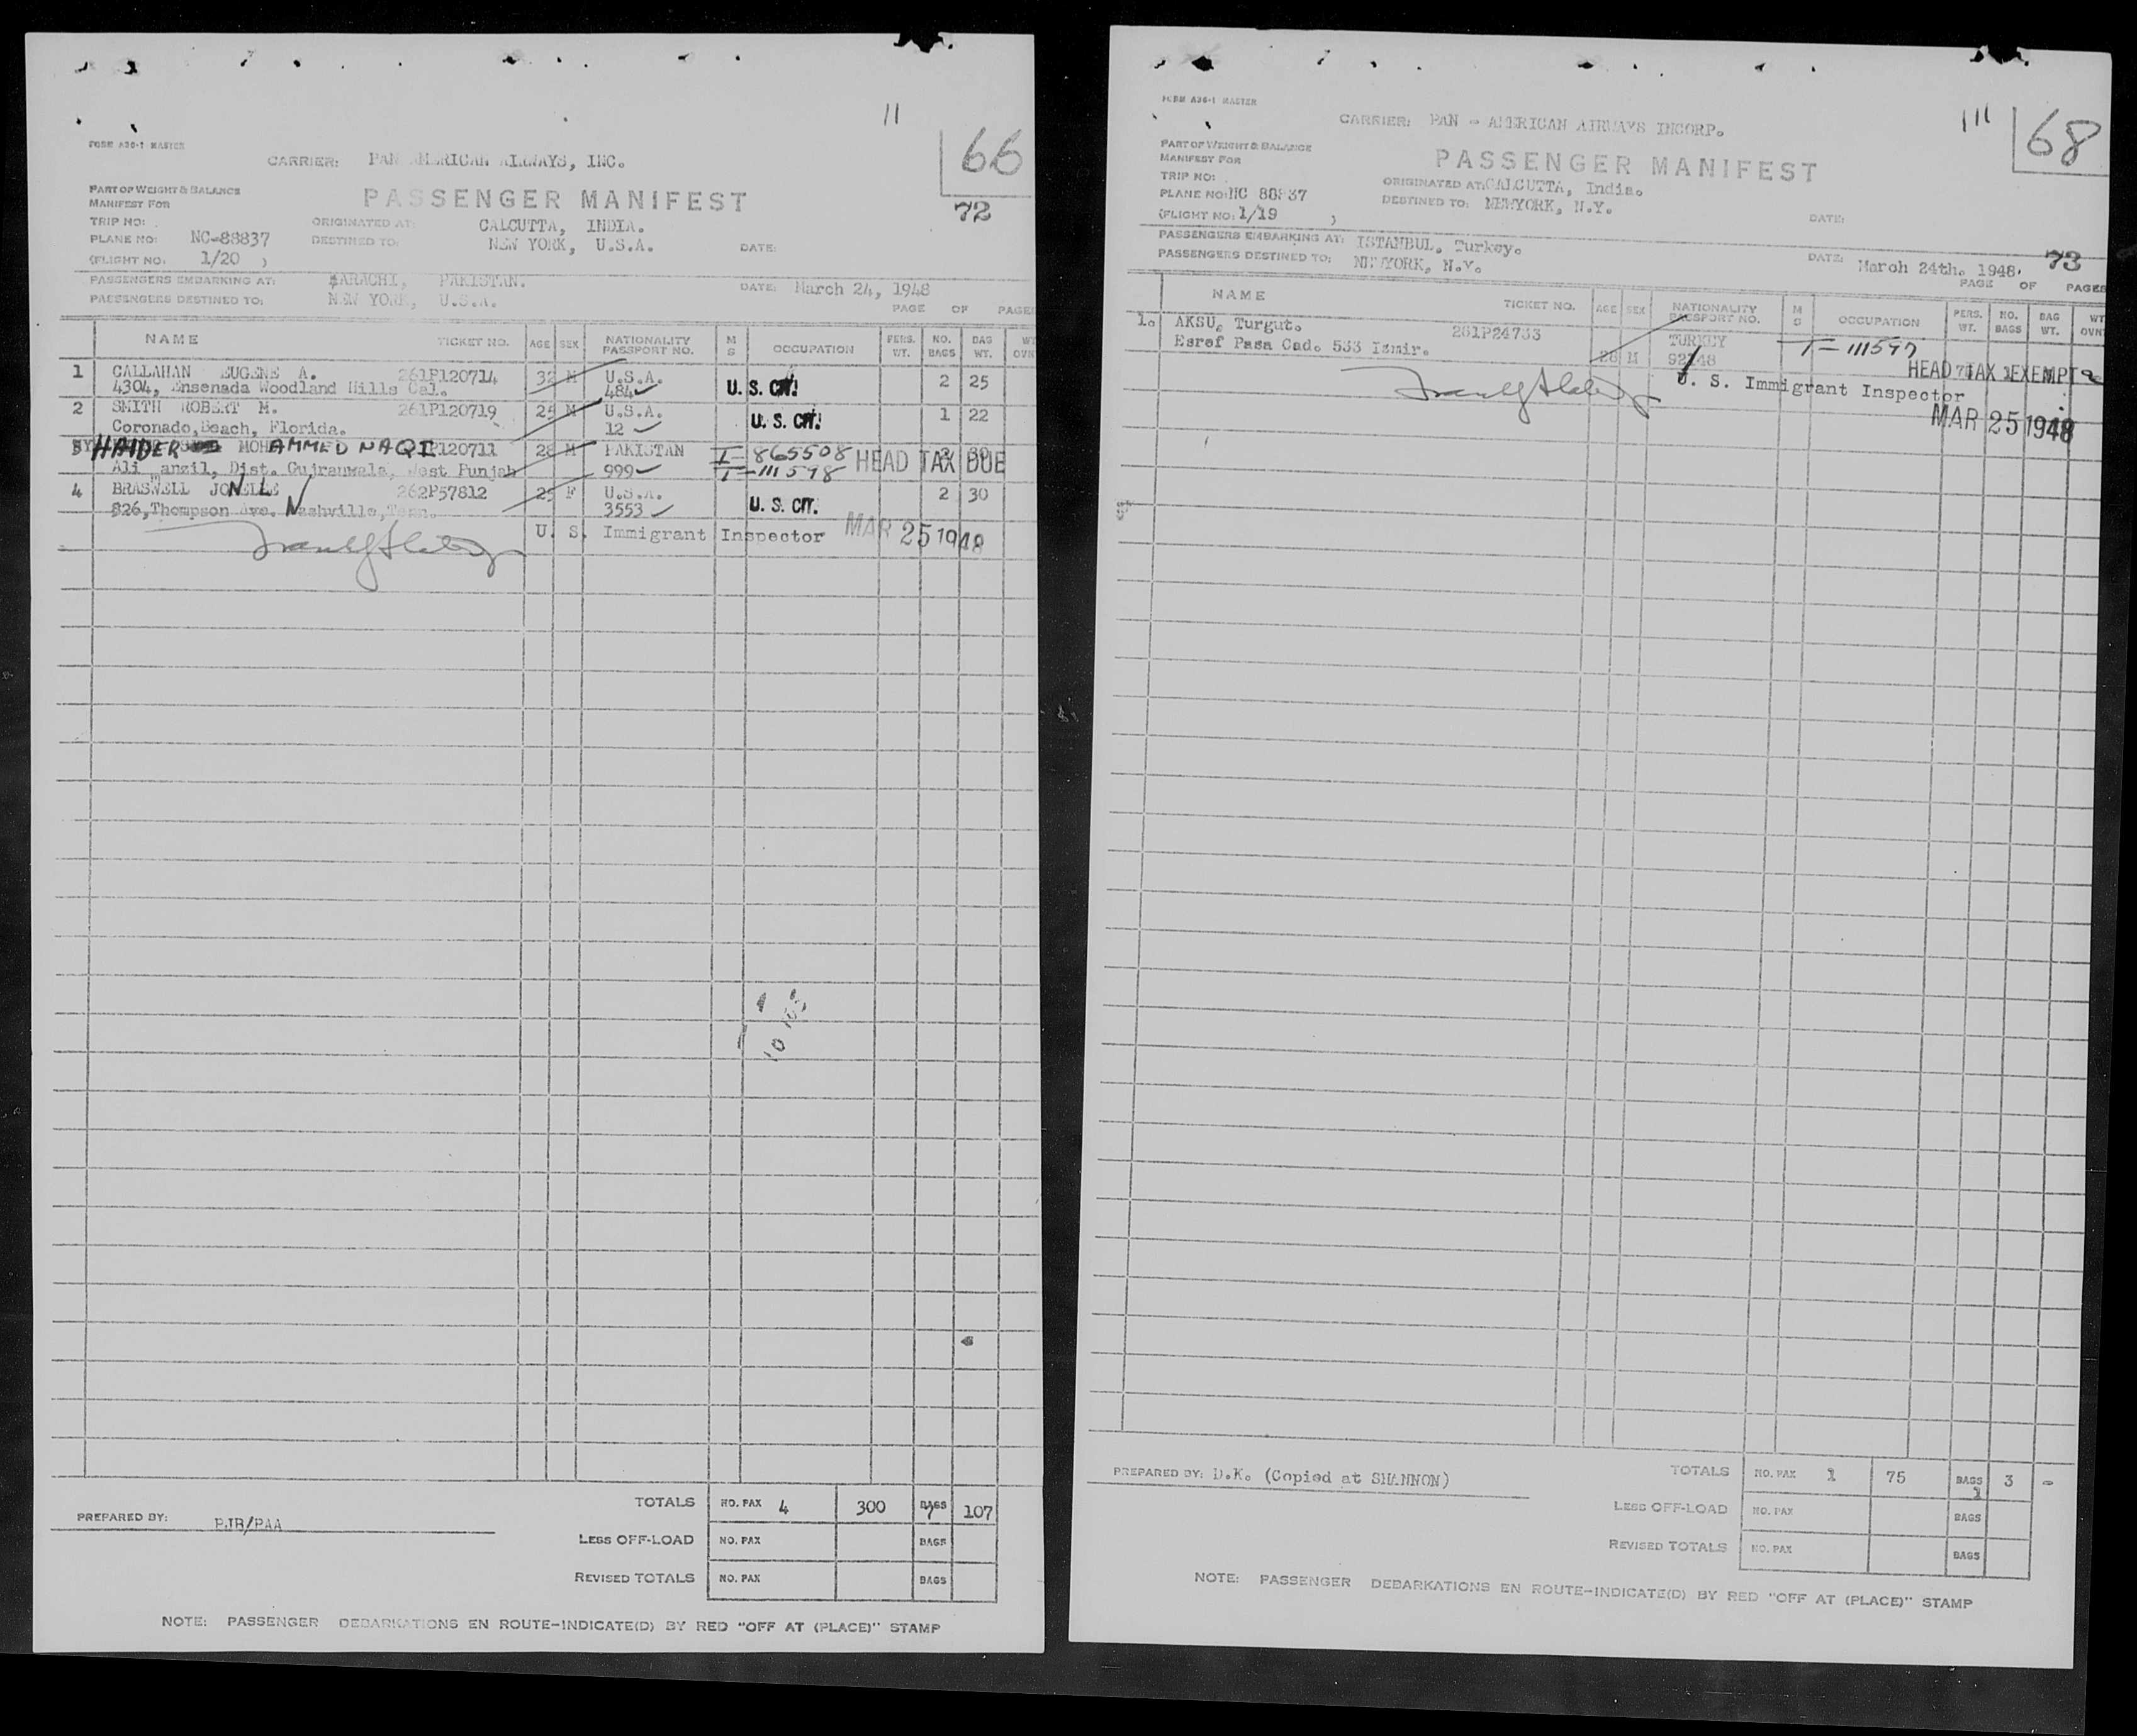 11
FORM A36-1 MASTER
66
CARRIER: PAN AMERICAN AIRWAYS, INC.
PART OF WEIGHT & BALANCE
MANIFEST FOR
PASSENGER MANIFEST
72
TRIP NO:
ORIGINATED AT: CALCUTTA, INDIA.
PLANE NO: NC-88837
DESTINED TO: NEW YORK, U.S.A. DATE:
(FLIGHT NO: 1/20 )
PASSENGERS EMBARKING AT: KARACHI, PAKISTAN. DATE: March 24, 1948
PASSENGERS DESTINED TO: NEW YORK, U.S.A. PAGE OF PAGES
NAME TICKET NO. AGE SEX NATIONALITY PASSPORT NO. M S OCCUPATION PERS. WT. NO. BAGS BAG WT. WT
1 CALLAHAN EUGENE A. 261P120714 32 M U.S.A. 2 25
4304, Ensenada Woodland Hills Cal. 484 U. S. CIT.
2 SMITH ROBERT M. 261P120719 25 M U.S.A. 1 22
Coronado,Beach, Florida. 12 U. S. CIT.
HAIDER MOHAMMED NAQI P120711 28 M PAKISTAN I-865508 HEAD TAX DUE
Ali anzil, Dist. Gujranwala, West Punjab 999 T-111598
4 BRASWELL JONELLE 262P57812 25 F U.S.A. 2 30
826,Thompson Ave. Nashville,Tenn. 3553 U. S. CIT.
U. S. Immigrant Inspector MAR 25 1948
PREPARED BY: PJB/PAA
TOTALS NO. PAX 4 300 BAGS 7 107
LESS OFF-LOAD NO. PAX BAGS
REVISED TOTALS NO. PAX BAGS
NOTE: PASSENGER DEBARKATIONS EN ROUTE-INDICATE(D) BY RED "OFF AT (PLACE)" STAMP
FORM A36-1 MASTER
111
68
CARRIER: PAN - AMERICAN AIRWAYS INCORP.
PART OF WEIGHT & BALANCE
MANIFEST FOR
PASSENGER MANIFEST
TRIP NO:
ORIGINATED AT: CALCUTTA, India.
PLANE NO: NC 88837
DESTINED TO: NEWYORK, N.Y. DATE:
(FLIGHT NO: 1/19 )
PASSENGERS EMBARKING AT: ISTANBUL, Turkey. DATE: March 24th. 1948. 73
PASSENGERS DESTINED TO: NEWYORK, N.Y. PAGE OF PAGES
NAME TICKET NO. AGE SEX NATIONALITY PASSPORT NO. M S OCCUPATION PERS. WT. NO. BAGS BAG WT. WT
1. AKSU, Turgut. 261P24733 TURKEY T-111597
Esref Pasa Cad. 533 Izmir. 28 M HEAD TAX EXEMPT
U. S. Immigrant Inspector
MAR 25 1948
PREPARED BY: D.K. (Copied at SHANNON)
TOTALS NO. PAX 1 75 BAGS 3 -
LESS OFF-LOAD NO. PAX BAGS
REVISED TOTALS NO. PAX BAGS
NOTE: PASSENGER DEBARKATIONS EN ROUTE-INDICATE(D) BY RED "OFF AT (PLACE)" STAMP